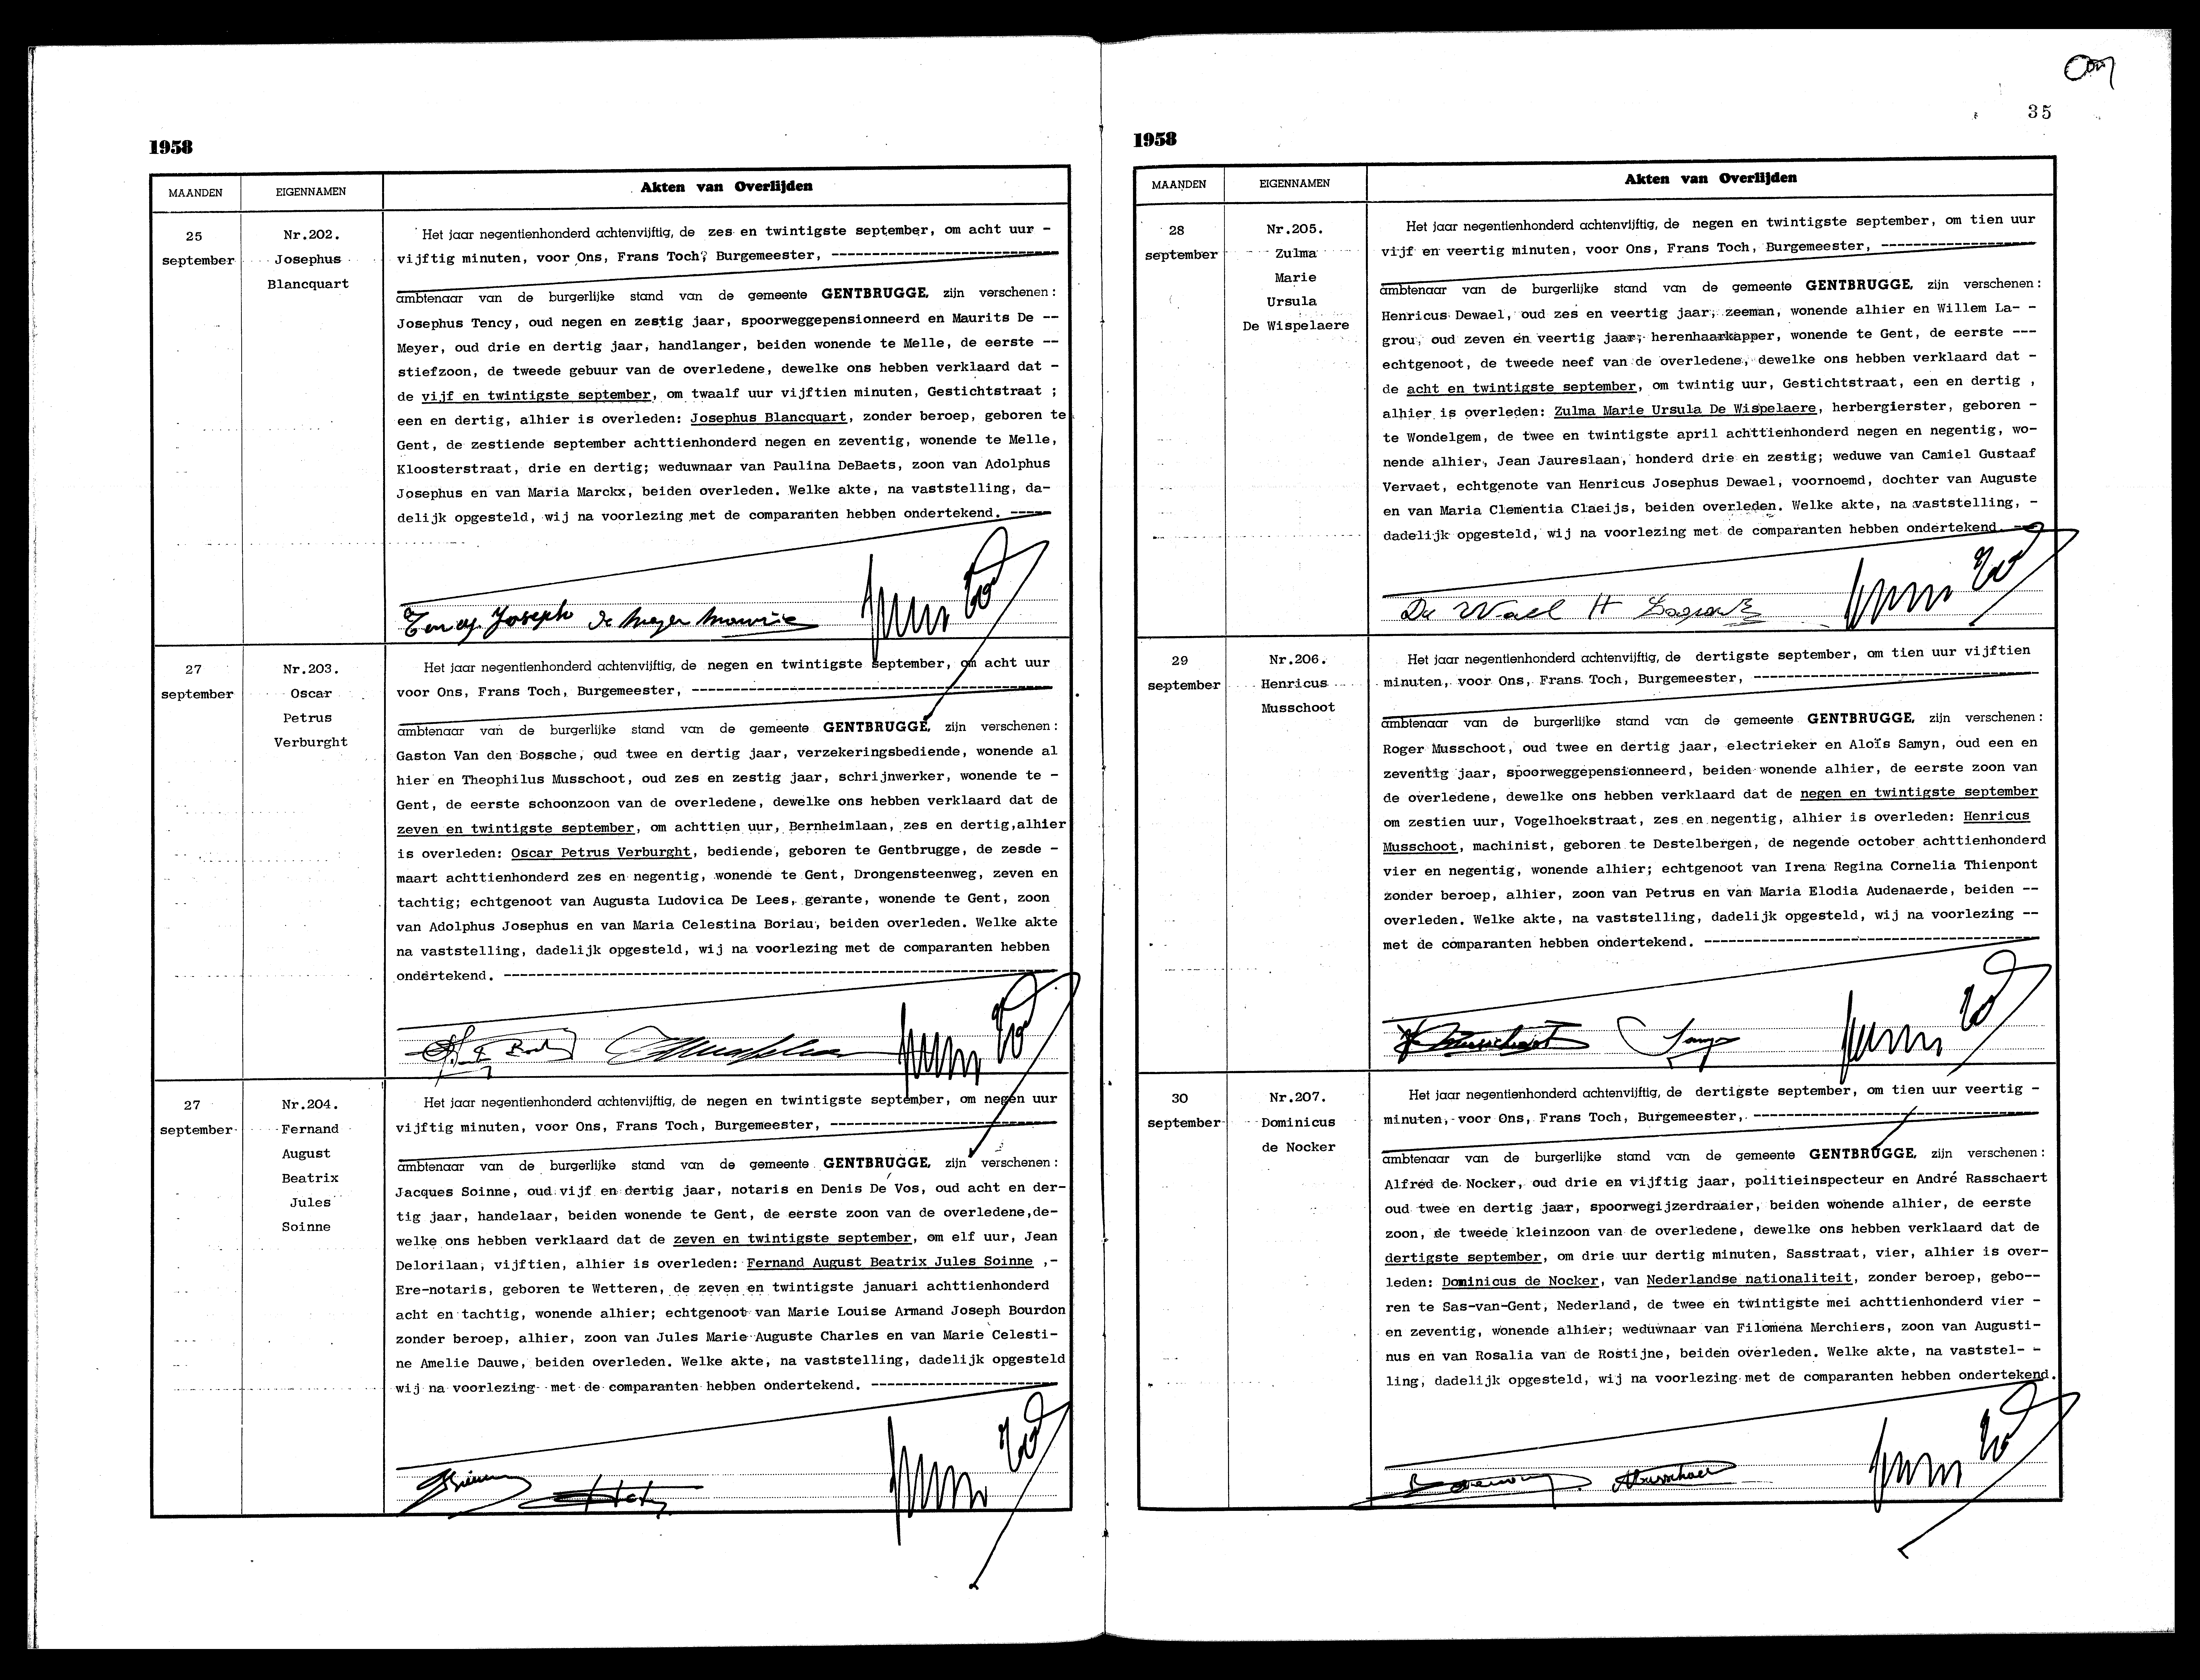 1958
MAANDEN
EIGENNAMEN
Akten van Overlijden
25
september
Nr.202.
Josephus
Blancquart
Het jaar negentienhonderd achtenvijftig, de zes en twintigste september, om acht uur -
vijftig minuten, voor Ons, Frans Toch, Burgemeester, ----------------------------
ambtenaar van de burgerlijke stand van de gemeente GENTBRUGGE, zijn verschenen:
Josephus Tency, oud negen en zestig jaar, spoorweggepensionneerd en Maurits De --
Meyer, oud drie en dertig jaar, handlanger, beiden wonende te Melle, de eerste --
stiefzoon, de tweede gebuur van de overledene, dewelke ons hebben verklaard dat -
de vijf en twintigste september, om twaalf uur vijftien minuten, Gestichtstraat ;
een en dertig, alhier is overleden: Josephus Blancquart, zonder beroep, geboren te
Gent, de zestiende september achttienhonderd negen en zeventig, wonende te Melle,
Kloosterstraat, drie en dertig; weduwnaar van Paulina DeBaets, zoon van Adolphus
Josephus en van Maria Marckx, beiden overleden. Welke akte, na vaststelling, da-
delijk opgesteld, wij na voorlezing met de comparanten hebben ondertekend. -----
Tency. Joseph De Meyer Maurice
27
september
Nr.203.
Oscar
Petrus
Verburght
Het jaar negentienhonderd achtenvijftig, de negen en twintigste september, om acht uur
voor Ons, Frans Toch, Burgemeester, --------------------------------------------
ambtenaar van de burgerlijke stand van de gemeente GENTBRUGGE, zijn verschenen:
Gaston Van den Bossche, oud twee en dertig jaar, verzekeringsbediende, wonende al
hier en Theophilus Musschoot, oud zes en zestig jaar, schrijnwerker, wonende te -
Gent, de eerste schoonzoon van de overledene, dewelke ons hebben verklaard dat de
zeven en twintigste september, om achttien uur, Bernheimlaan, zes en dertig,alhier
is overleden: Oscar Petrus Verburght, bediende, geboren te Gentbrugge, de zesde -
maart achttienhonderd zes en negentig, wonende te Gent, Drongensteenweg, zeven en
tachtig; echtgenoot van Augusta Ludovica De Lees, gerante, wonende te Gent, zoon
van Adolphus Josephus en van Maria Celestina Boriau, beiden overleden. Welke akte
na vaststelling, dadelijk opgesteld, wij na voorlezing met de comparanten hebben
ondertekend. -------------------------------------------------------------------
27
september
Nr.204.
Fernand
August
Beatrix
Jules
Soinne
Het jaar negentienhonderd achtenvijftig, de negen en twintigste september, om negen uur
vijftig minuten, voor Ons, Frans Toch, Burgemeester, ----------------------------
ambtenaar van de burgerlijke stand van de gemeente GENTBRUGGE, zijn verschenen:
Jacques Soinne, oud vijf en dertig jaar, notaris en Denis De Vos, oud acht en der-
tig jaar, handelaar, beiden wonende te Gent, de eerste zoon van de overledene,de-
welke ons hebben verklaard dat de zeven en twintigste september, om elf uur, Jean
Delorilaan, vijftien, alhier is overleden: Fernand August Beatrix Jules Soinne ,-
Ere-notaris, geboren te Wetteren, de zeven en twintigste januari achttienhonderd
acht en tachtig, wonende alhier; echtgenoot van Marie Louise Armand Joseph Bourdon
zonder beroep, alhier, zoon van Jules Marie Auguste Charles en van Marie Celesti-
ne Amelie Dauwe, beiden overleden. Welke akte, na vaststelling, dadelijk opgesteld
wij na voorlezing met de comparanten hebben ondertekend. -----------------------
35
1958
MAANDEN
EIGENNAMEN
Akten van Overlijden
28
september
Nr.205.
Zulma
Marie
Ursula
De Wispelaere
Het jaar negentienhonderd achtenvijftig, de negen en twintigste september, om tien uur
vijf en veertig minuten, voor Ons, Frans Toch, Burgemeester, -------------------
ambtenaar van de burgerlijke stand van de gemeente GENTBRUGGE, zijn verschenen:
Henricus Dewael, oud zes en veertig jaar, zeeman, wonende alhier en Willem La- -
grou, oud zeven en veertig jaar, herenhaarkapper, wonende te Gent, de eerste ---
echtgenoot, de tweede neef van de overledene, dewelke ons hebben verklaard dat -
de acht en twintigste september, om twintig uur, Gestichtstraat, een en dertig ,
alhier is overleden: Zulma Marie Ursula De Wispelaere, herbergierster, geboren -
te Wondelgem, de twee en twintigste april achttienhonderd negen en negentig, wo-
nende alhier, Jean Jaureslaan, honderd drie en zestig; weduwe van Camiel Gustaaf
Vervaet, echtgenote van Henricus Josephus Dewael, voornoemd, dochter van Auguste
en van Maria Clementia Claeijs, beiden overleden. Welke akte, na vaststelling, -
dadelijk opgesteld, wij na voorlezing met de comparanten hebben ondertekend. ---
De Wael H
29
september
Nr.206.
Henricus
Musschoot
Het jaar negentienhonderd achtenvijftig, de dertigste september, om tien uur vijftien
minuten, voor Ons, Frans Toch, Burgemeester, -----------------------------------
ambtenaar van de burgerlijke stand van de gemeente GENTBRUGGE, zijn verschenen:
Roger Musschoot, oud twee en dertig jaar, electrieker en Aloïs Samyn, oud een en
zeventig jaar, spoorweggepensionneerd, beiden wonende alhier, de eerste zoon van
de overledene, dewelke ons hebben verklaard dat de negen en twintigste september
om zestien uur, Vogelhoekstraat, zes en negentig, alhier is overleden: Henricus
Musschoot, machinist, geboren te Destelbergen, de negende october achttienhonderd
vier en negentig, wonende alhier; echtgenoot van Irena Regina Cornelia Thienpont
zonder beroep, alhier, zoon van Petrus en van Maria Elodia Audenaerde, beiden --
overleden. Welke akte, na vaststelling, dadelijk opgesteld, wij na voorlezing --
met de comparanten hebben ondertekend. -----------------------------------------
30
september
Nr.207.
Dominicus
de Nocker
Het jaar negentienhonderd achtenvijftig, de dertigste september, om tien uur veertig -
minuten, voor Ons, Frans Toch, Burgemeester, -----------------------------------
ambtenaar van de burgerlijke stand van de gemeente GENTBRUGGE, zijn verschenen:
Alfred de Nocker, oud drie en vijftig jaar, politieinspecteur en André Rasschaert
oud twee en dertig jaar, spoorwegijzerdraaier, beiden wonende alhier, de eerste
zoon, de tweede kleinzoon van de overledene, dewelke ons hebben verklaard dat de
dertigste september, om drie uur dertig minuten, Sasstraat, vier, alhier is over-
leden: Dominicus de Nocker, van Nederlandse nationaliteit, zonder beroep, gebo--
ren te Sas-van-Gent, Nederland, de twee en twintigste mei achttienhonderd vier -
en zeventig, wonende alhier; weduwnaar van Filomena Merchiers, zoon van Augusti-
nus en van Rosalia van de Rostijne, beiden overleden. Welke akte, na vaststel- -
ling, dadelijk opgesteld, wij na voorlezing met de comparanten hebben ondertekend.